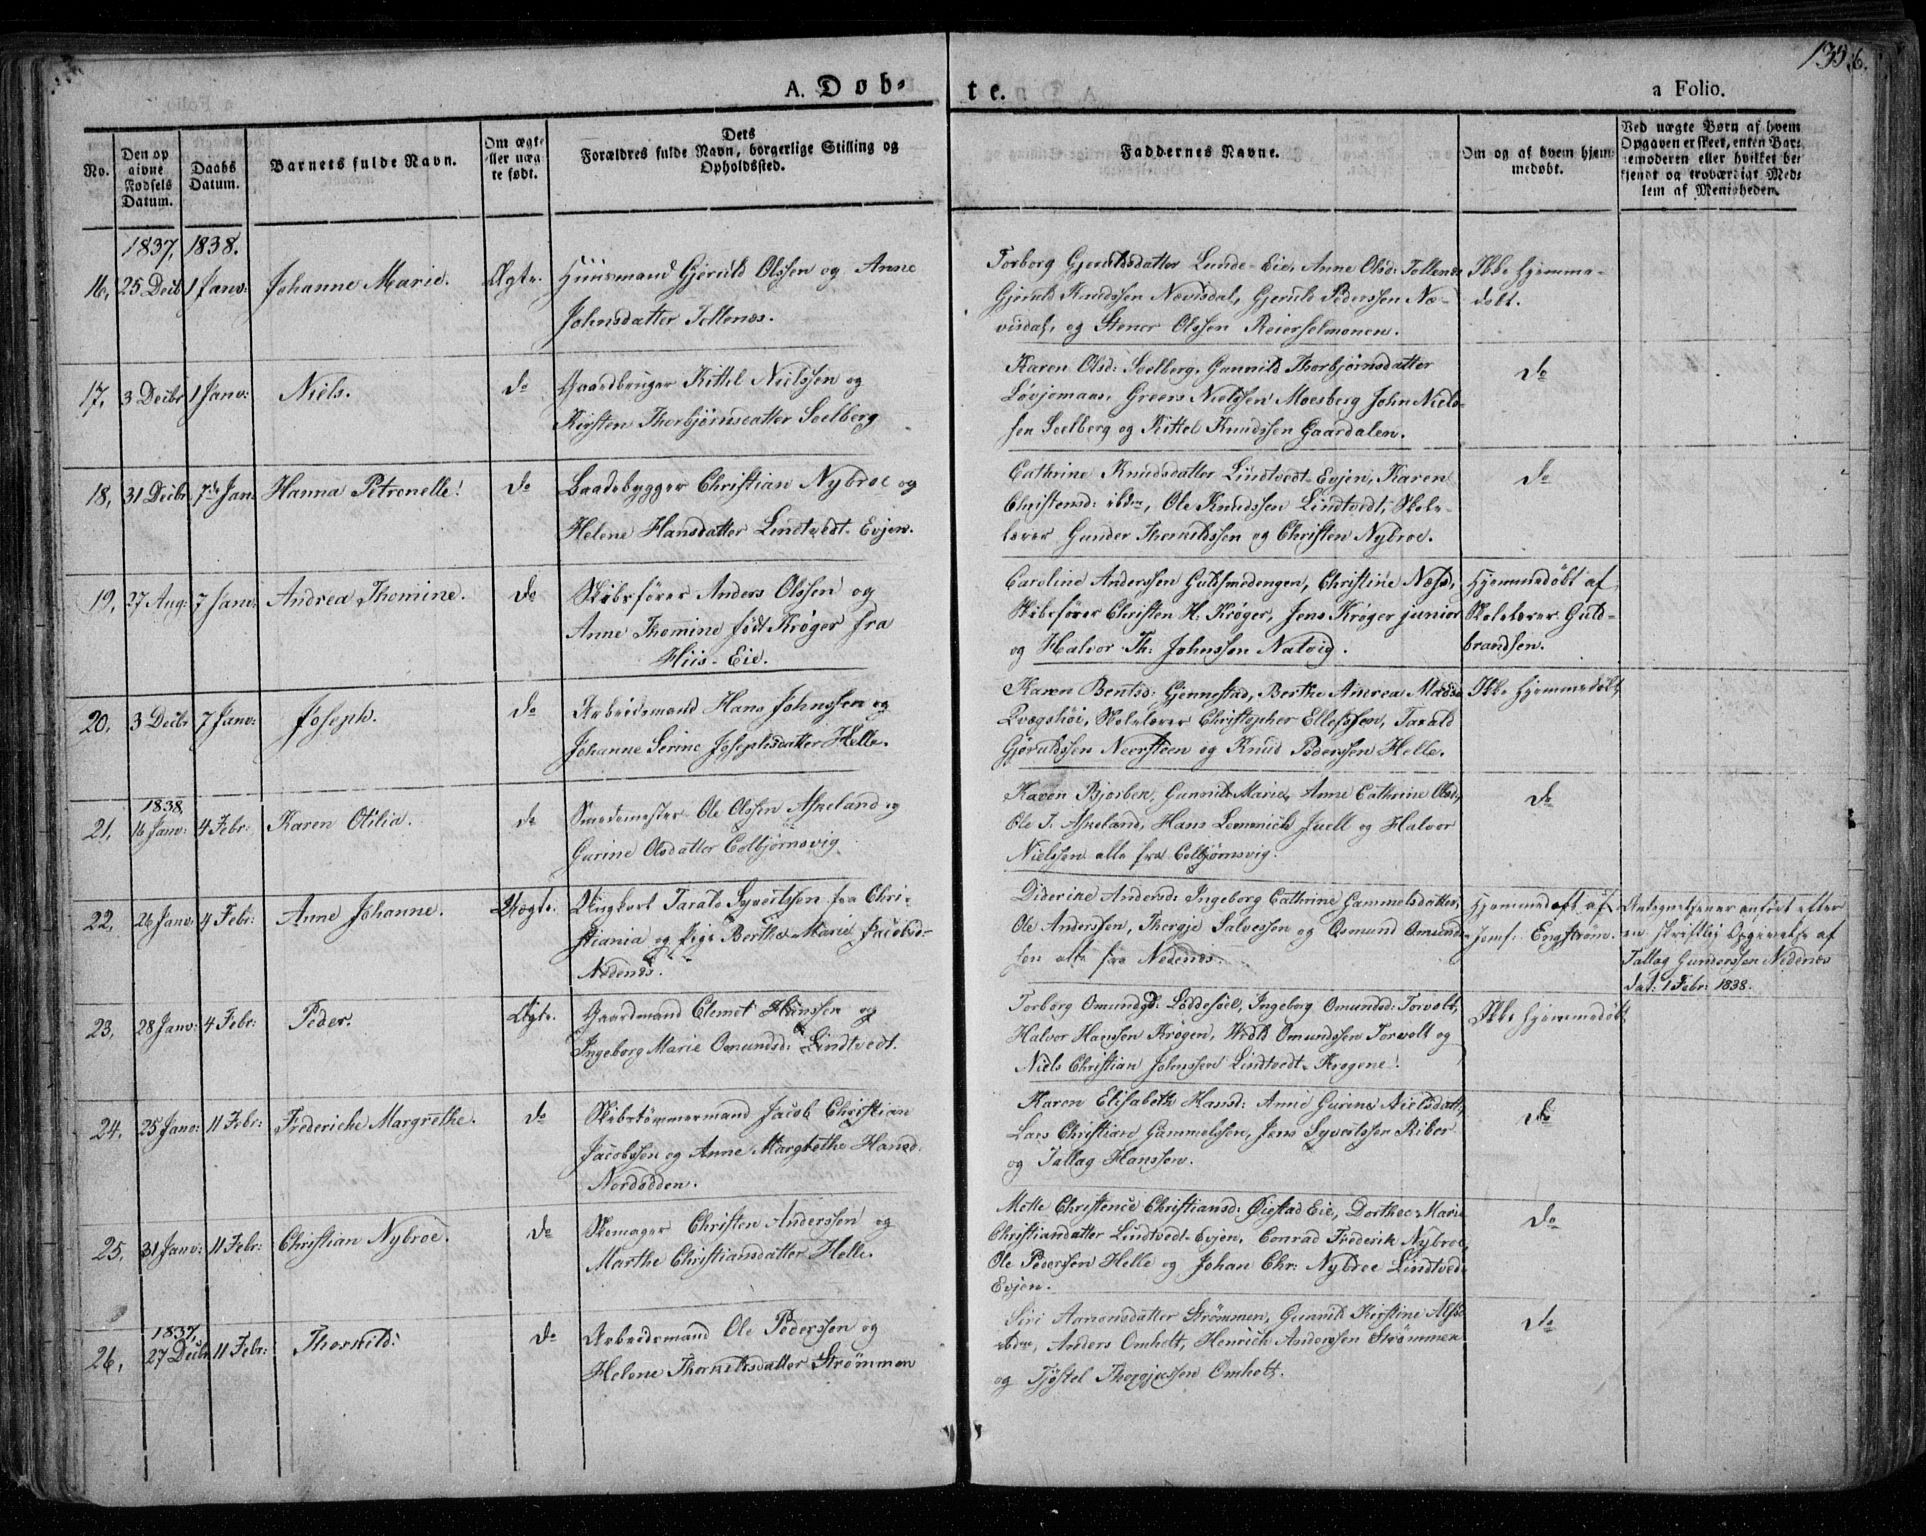 135b.
A. Døb-
te.
a Folio.
No.
Den op
givne
Fødsels
Datum.
Daabs
Datum.
Barnets fulde Navn.
Om ægte
eller uæg
te født.
Dets
Forældres fulde Navn, borgerlige Stilling og
Opholdssted.
Faddernes Navne.
Om og af hvem hjem
medøbt.
Ved uægte Børn af hvem
Opgaven er skeet, enten Bar
nemoderen eller hvilket be
kjendt og troværdigt Med
lem af Menigheden.
1837, 1838.
16, 25 Decb 1 Janv: Johanne Marie. Ægte. Huusmand Gjeruld Olssen og Anne
Johnsdatter Tellenæs.
Torborg Gjeruldsdatter Lunde-Eie, Anne Olsd: Tellenæs
Gjeruld Knudssen Nævisdal, Gjeruld Pederssen Næ-
visdal, og Stener Olssen Reierselmonen.
Ikke hjemme-
døbt.
17, 3 Decbr 1 Janv: Niels. do Gaardbruger Kittel Nielssen og
Kirsten Thorbjørnsdatter Soelberg
Karen Olsd: Soelberg, Gunnild Thorbjørnsdatter
Løvjomaas, Greers Nielssen Moesberg John Niels-
sen Soelberg og Kittel Knudssen Gaardalen.
do
18, 31 Decbr 7de Jan: Hanna Petronelle. do Baadebygger Christian Nybroe og
Helene Hansdatter Lindtvedt-Evjen.
Cathrine Knudsdatter Lindtvedt-Evjen, Karen
Christensd: ibdm, Ole Knudssen Lindtvedt, Skole-
lærer Gunder Thorkildssen og Christen Nybroe.
do
19, 27 Aug: 7 Janv: Andrea Thomine. do Skibsfører Anders Olssen og
Anne Thomine født Krøger fra
Hiis-Eie.
Caroline Anderssen Guldsmedengen, Christine Næss,
Skibsfører Christen H. Krøger, Jens Krøger junior
og Halvor Th: Johnssen Natvig.
Hjemmedøbt af
Skolelærer Guld-
brandsen.
20, 3 Decbr 7 Janv: Joseph. do Arbeidsmand Hans Johnssen og
Johanne Serine Josephsdatter Helle.
Karen Bentsd: Gjennestad, Berthe Andrea
Qvægshøi, Skolelærer Christopher Ellefssen, Tarald
Gjeruldssen Neersteen og Knud Pederssen Helle.
Ikke hjemmedøbt
1838,
21, 16 Janv: 4 Febr: Karen Otilia. do Smedemester Ole Olssen Askeland og
Gurine Olsdatter Colbjørnsvig
Karen Bjorben, Gunnild Marie, Anne Cathrine Olsd,
Ole J. Askeland, Hans Lemmich Juell og Halvor
Nielssen alle fra Colbjørnsvig.
do
22, 26 Janv: 4 Febr: Anne Johanne. Uægte. Ungkarl Tarald Syvertssen fra Chri-
stiania og Pige Berthe Marie Jacobsd-
Nedenes.
Diderine Andersd: Ingeborg Cathrine Gammelsdatter,
Ole Anderssen, Thergje Salvessen og Osmund Omund-
sen alle fra Nedenes.
Hjemmedøbt af
Jomf: Engstrøm.
Antegnelserne anført efter
en skriftlig Opgivelse af
Tallag Gunderssen Nedenes
dat: 1 Febr: 1838.
23, 28 Janv: 4 Febr: Peder. Ægte. Gaardmand Clemet Hanssen og
Ingeborg Marie Omundsd: Lindtvedt.
Torborg Omundsd: Løddesøl, Ingeborg Omundsd: Torvolt,
Halvor Hanssen Krøgen, Omundssen Torvolt og
Niels Christian Johnssen Lindtvedt-Krøgene.
Ikke hjemmedøbt
24, 25 Janv: 11 Febr: Frederiche Margrethe. do Skibstømmermand Jacob Christian
Jacobssen og Anne Margrethe Hansd:
Nordodden.
Karen Elisabeth Hansd: Anne Gurine Nielsdatt,
Lars Christian Gammelssen, Jens Syvertssen Riber
og Tallag Hanssen.
do
25, 31 Janv: 11 Febr: Christian Nybroe. do Skomager Christen Anderssen og
Marthe Christiansdatter Helle.
Mette Christence Christiansd: Øiestad Eie, Dorthea Marie
Christiandatter Lindtvedt-Evjen, Conrad Frederik Nybroe,
Ole Pederssen Helle og Johan Chr: Nybroe Lindtvedt
Evjen.
do
1837,
26, 27 Decbr 11 Febr: Thorkild. do Arbeidsmand Ole Pederssen og
Helene Thorkildsdatter Strømmen
Siri Aanonsdatter Strømmen, Gunnild Kirstine
ibdm, Anders Omholt, Henrich Anderssen Strømmen
og Tjøstel Thergjussen Omholt.
do